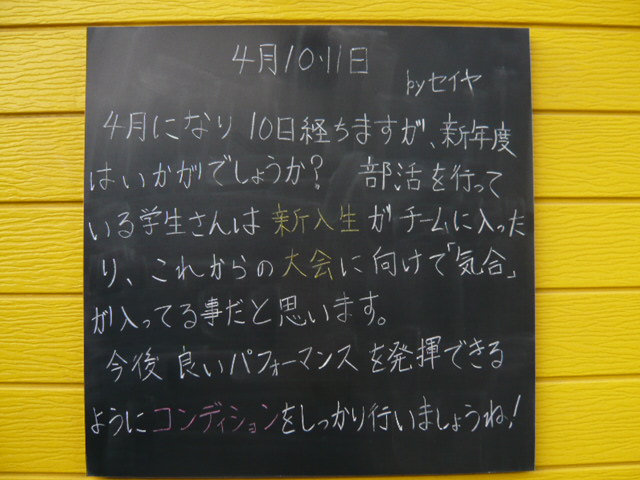 4月10・11日
byセイヤ
4月になり10日経ちますが、新年度
はいかがでしょうか? 部活を行って
いる学生さんは新入生がチームに入った
り、これからの大会に向けて「気合」
が入ってる事だと思います。
今後良いパフォーマンスを発揮できる
ようにコンディションをしっかり行いましょうね!